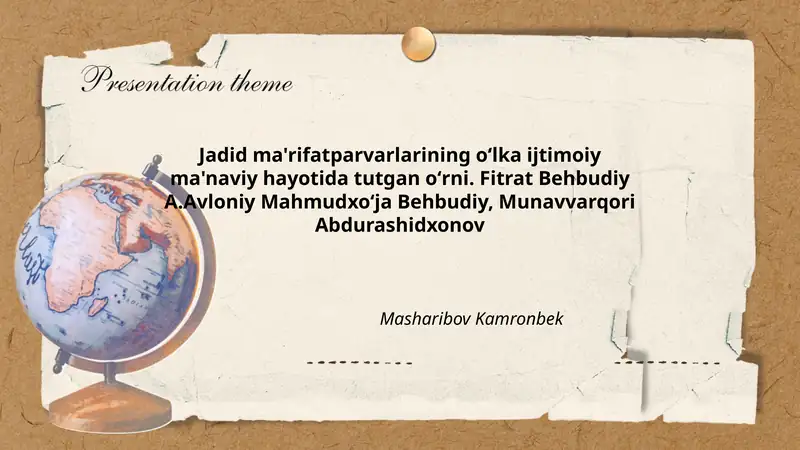 Presentation theme
Jadid ma'rifatparvarlarining o‘lka ijtimoiy
ma'naviy hayotida tutgan o‘rni. Fitrat Behbudiy
A.Avloniy Mahmudxo‘ja Behbudiy, Munavvarqori
Abdurashidxonov
Masharibov Kamronbek